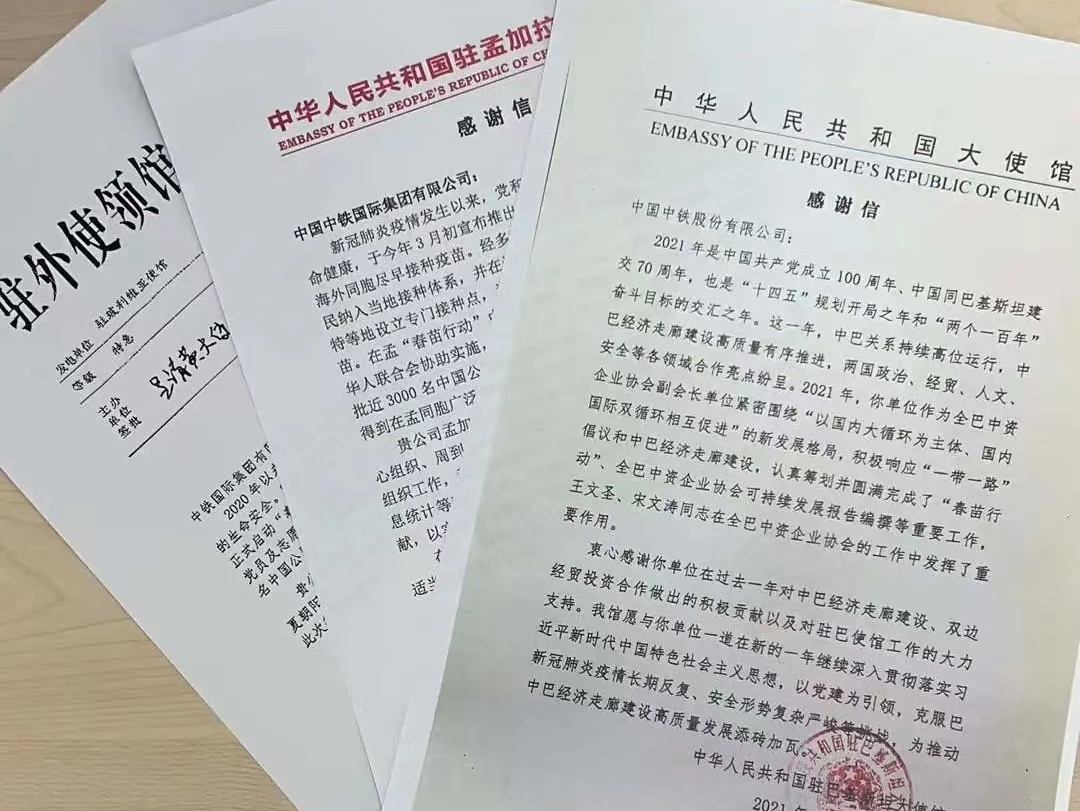 驻外使领馆
发电单位 驻玻利维亚使馆
等级 特急
主办
单位
签批
中铁国际集团有限
2020年以
的生命安全。
正式启动。
党员及志愿
名中国公
贵
夏朝阳
此次
中华人民共和国驻孟加拉
EMBASSY OF THE PEOPLE'S REPUBLIC OF CH
感谢信
中国中铁国际集团有限公司：
新冠肺炎疫情发生以来，党和
命健康，于今年3月初宣布推出
海外同胞尽早接种疫苗。经多
民纳入当地接种体系，并在
特等地设立专门接种点，
苗。在孟“春苗行动”
华人联合会协助实施，
批近3000名中国公
得到在孟同胞广泛
贵公司孟加
心组织、周到
组织工作，
息统计等
献，以
适当
中华人民共和国大使馆
EMBASSY OF THE PEOPLE'S REPUBLIC OF CHINA
感谢信
中国中铁股份有限公司：
2021年是中国共产党成立100周年、中国同巴基斯坦建
交70周年，也是“十四五”规划开局之年和“两个一百年”
奋斗目标的交汇之年。这一年，中巴关系持续高位运行，中
巴经济走廊建设高质量有序推进，两国政治、经贸、人文、
安全等各领域合作亮点纷呈。2021年，你单位作为全巴中资
企业协会副会长单位紧密围绕“以国内大循环为主体、国内
国际双循环相互促进”的新发展格局，积极响应“一带一路”
倡议和中巴经济走廊建设，认真筹划并圆满完成了“春苗行
动”、全巴中资企业协会可持续发展报告编撰等重要工作，
王文圣、宋文涛同志在全巴中资企业协会的工作中发挥了重
要作用。
衷心感谢你单位在过去一年对中巴经济走廊建设、双边
经贸投资合作做出的积极贡献以及对驻巴使馆工作的大力
支持。我馆愿与你单位一道在新的一年继续深入贯彻落实习
近平新时代中国特色社会主义思想，以党建为引领，克服巴
新冠肺炎疫情长期反复、安全形势复杂严峻等挑战，为推动
中巴经济走廊建设高质量发展添砖加瓦。
中华人民共和国驻巴基斯坦大使馆
2021年